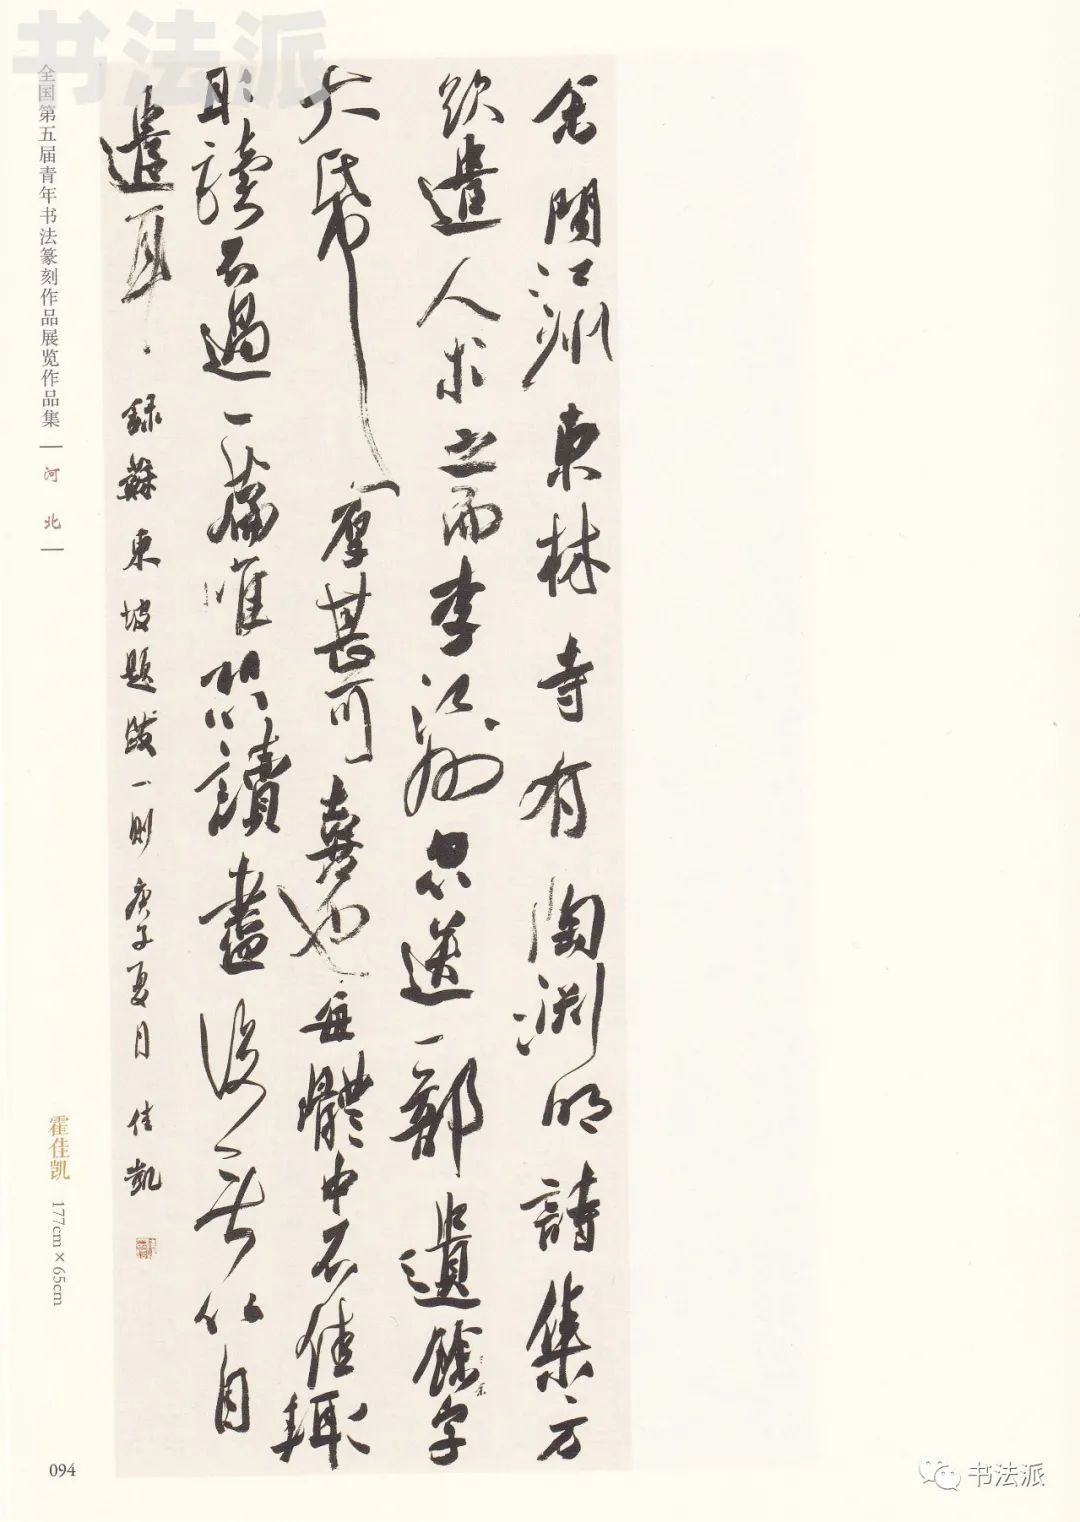 书法派
全国第五届青年书法篆刻作品展览作品集
河北
余聞江州東林寺有陶淵明詩集方
欲遣人求之而李江州忽送一部遺餘字
大帋厚甚可喜也每體中不佳輒
取讀不過一篇唯恐讀盡後無以自
遣耳 録蘇東坡題跋一則 庚子夏月 佳凱
霍佳凯
177cm×65cm
094
书法派